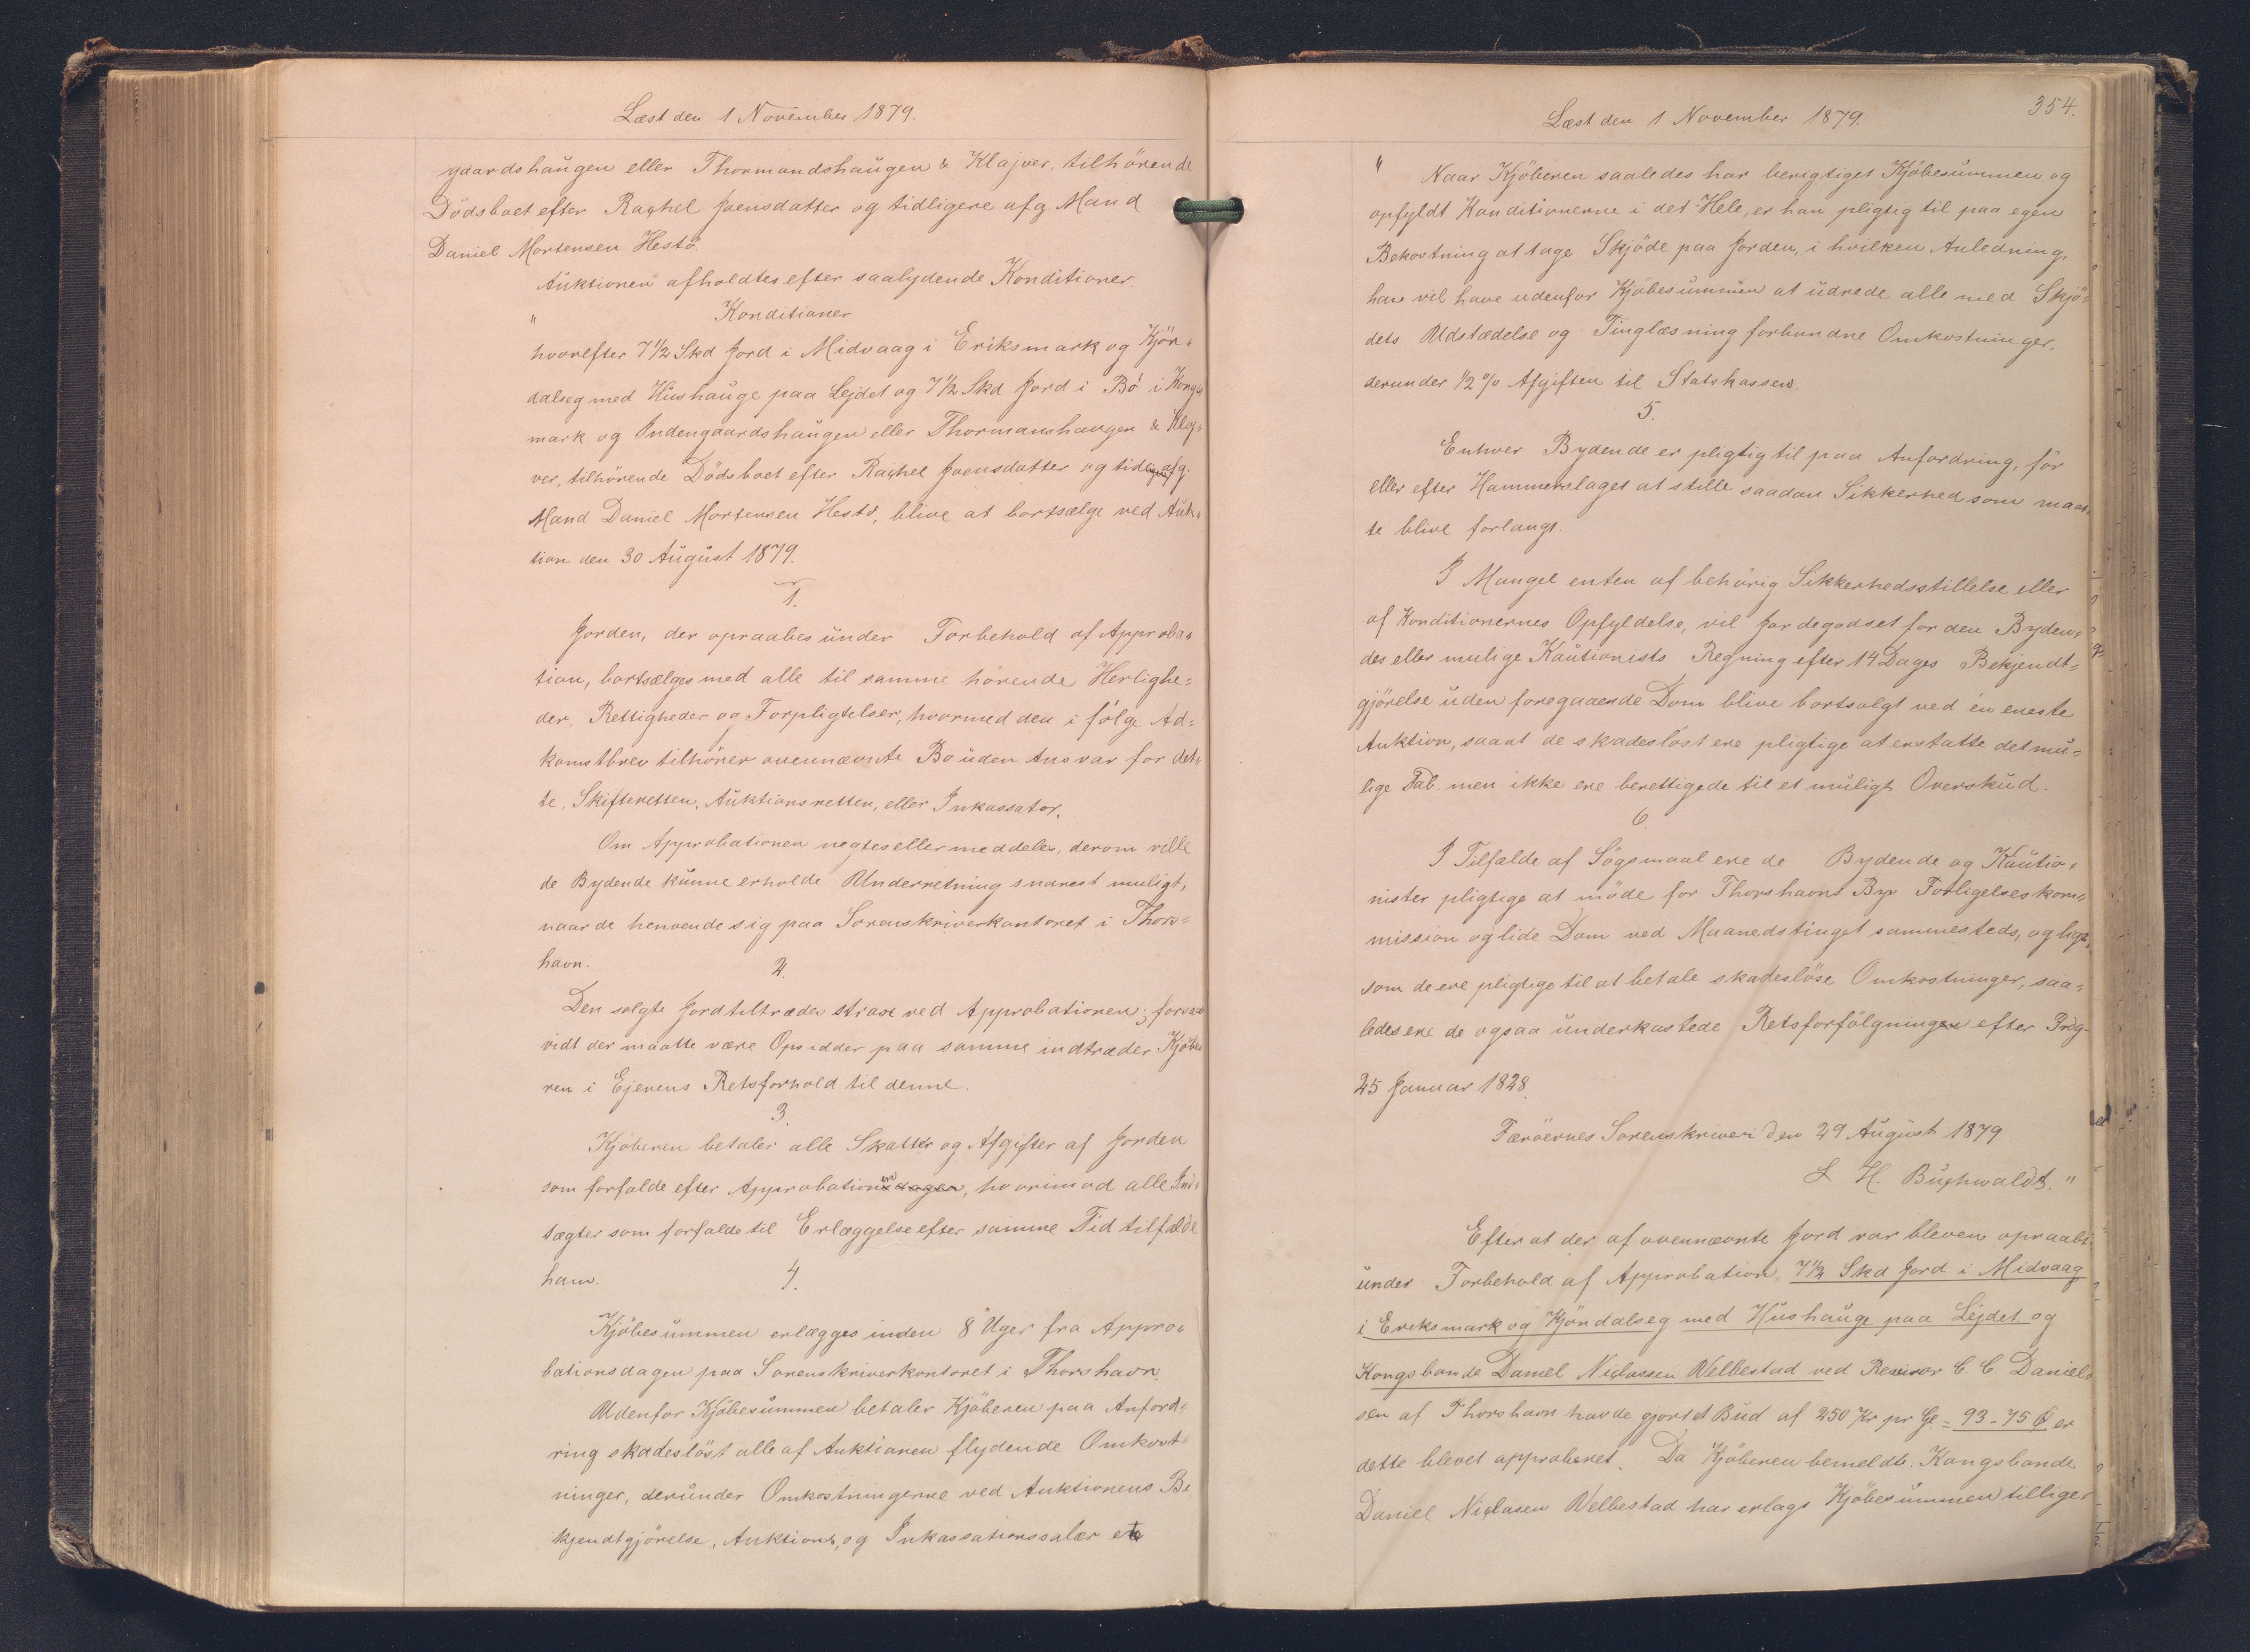 Læst den 1 November 1879.
gaardshaugen eller Thormandshaugen & Klajver, tilhörende
Dödsboet efter Rachel Joensdatter og tidligere afg. Mand
Daniel Mortensen Hestö.
Auktionen afholdtes efter saalydende Konditioner
" Konditioner
hvorefter 7 1/2 Skd Jord i Midvaag i Eriksmark og Kjön-
dalseg med Hushauge paa Lejdet og 7 1/2 Skd Jord i Bö i Kongs
mark og Indengaardshaugen eller Thormanshaugen & Klaj-
ver, tilhörende Dödsboet efter Rachel Joensdatter og tidligere afg.
Mand Daniel Mortensen Hestö, blive at bortsælge ved Auk-
tion den 30 August 1879.
1.
Jorden, der opraabes under Forbehold af Approba-
tion, bortsælges med alle til samme hörende Herlighe=
der, Rettigheder og Forpligtelser, hvormed den i fölge Ad=
komstbrev tilhörer ovennævnte Bo uden Ansvar for det-
te, Skifteretten, Auktionsretten, eller Inkassator.
Om Approbationen negtes eller meddeles, derom ville
de Bydende kunne erholde Underretning snarest muligt,
naar de henvende sig paa Sorenskriverkontoret i Thors=
havn.
2.
Den solgte Jord tiltrædes strax ved Approbationen; forsaa
vidt der maatte være Opsidder paa samme indtræder Kjöbe
ren i Ejerens Retsforhold til denne.
3.
Kjöberen betaler alle Skatter og Afgifter af Jorden
som forfalde efter Approbationen, hvorimod alle Ind-
tægter som forfalde til Erlæggelse efter samme Tid tilfalde
ham.
4.
Kjöbesummen erlægges inden 8 Uger fra Appro-
bationsdagen paa Sorenskriverkontoret i Thorshavn.
Udenfor Kjöbesummen betaler Kjöberen paa Anford-
ring skadeslöst alle af Auktionen flydende Omkost-
ninger, derunder Omkostningerne ved Auktionens Be
kjendtgjörelse, Auktions, og Inkassationssalær etc
Læst den 1 November 1879.
354.
" Naar Kjöberen saaledes har berigtiget Kjöbesummen og
opfyldt Konditionerne i det Hele, er han pligtig til paa egen
Bekostning at tage Skjöde paa Jorden, i hvilken Anledning,
han vil have udenfor Kjöbesummen at udrede alle med Skjö-
dets Udstædelse og Tinglæsning forbundne Omkostninger,
derunder 1/2 % Afgiften til Statskassen.
5.
Enhver Bydende er pligtig til paa Anfordring, för
eller efter Hammerslaget at stille saadan Sikkerhed som maat-
te blive forlangt.
I Mangel enten af behörig Sikkerhedsstillelse eller
af Konditionernes Opfyldelse, vil Jordegodset for den Byden-
des eller mulige Kautionists Regning efter 14 Dages Bekjendt=
gjörelse uden foregaaende Dom blive bortsolgt ved én eneste
Auktion, saaat de skadeslöst ere pligtige at erstatte det mu=
lige Tab men ikke ere berettigede til et muligt Overskud.
6
I Tilfælde af Sögsmaal ere de Bydende og Kautio-
nister pligtige at möde for Thorshavns Byes Forligelseskom-
mission og lide Dom ved Maanedstinget sammesteds, og lige-
som de ere pligtige til at betale skadeslöse Omkostninger, saa-
ledes ere de ogsaa underkastede Retsforfölgningen efter Frdg
25 Januar 1828.
Færöernes Sorenskriveri den 29 August 1879
L H. Buchwaldt. "
Efter at der af ovennævnte Jord var bleven opraabt
under Forbehold af Approbation, 7 1/2 Skd Jord i Midvaag
i Eriksmark og Kjöndalseg med Hushauge paa Lejdet og
Kongsbonde Daniel Niclassen Welbestad ved Revisor C. C. Daniel-
sen af Thorshavn havde gjort et Bud af 250 Kr pr Gl = 93-75 Ø er
dette blevet approberet. Da Kjöberen bemeldte Kongsbonde
Daniel Niclasen Welbestad har erlagt Kjöbesummen tillige